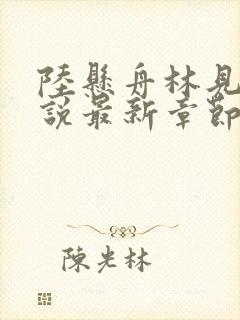 陸懸舟林見
說最新章節
陳光林